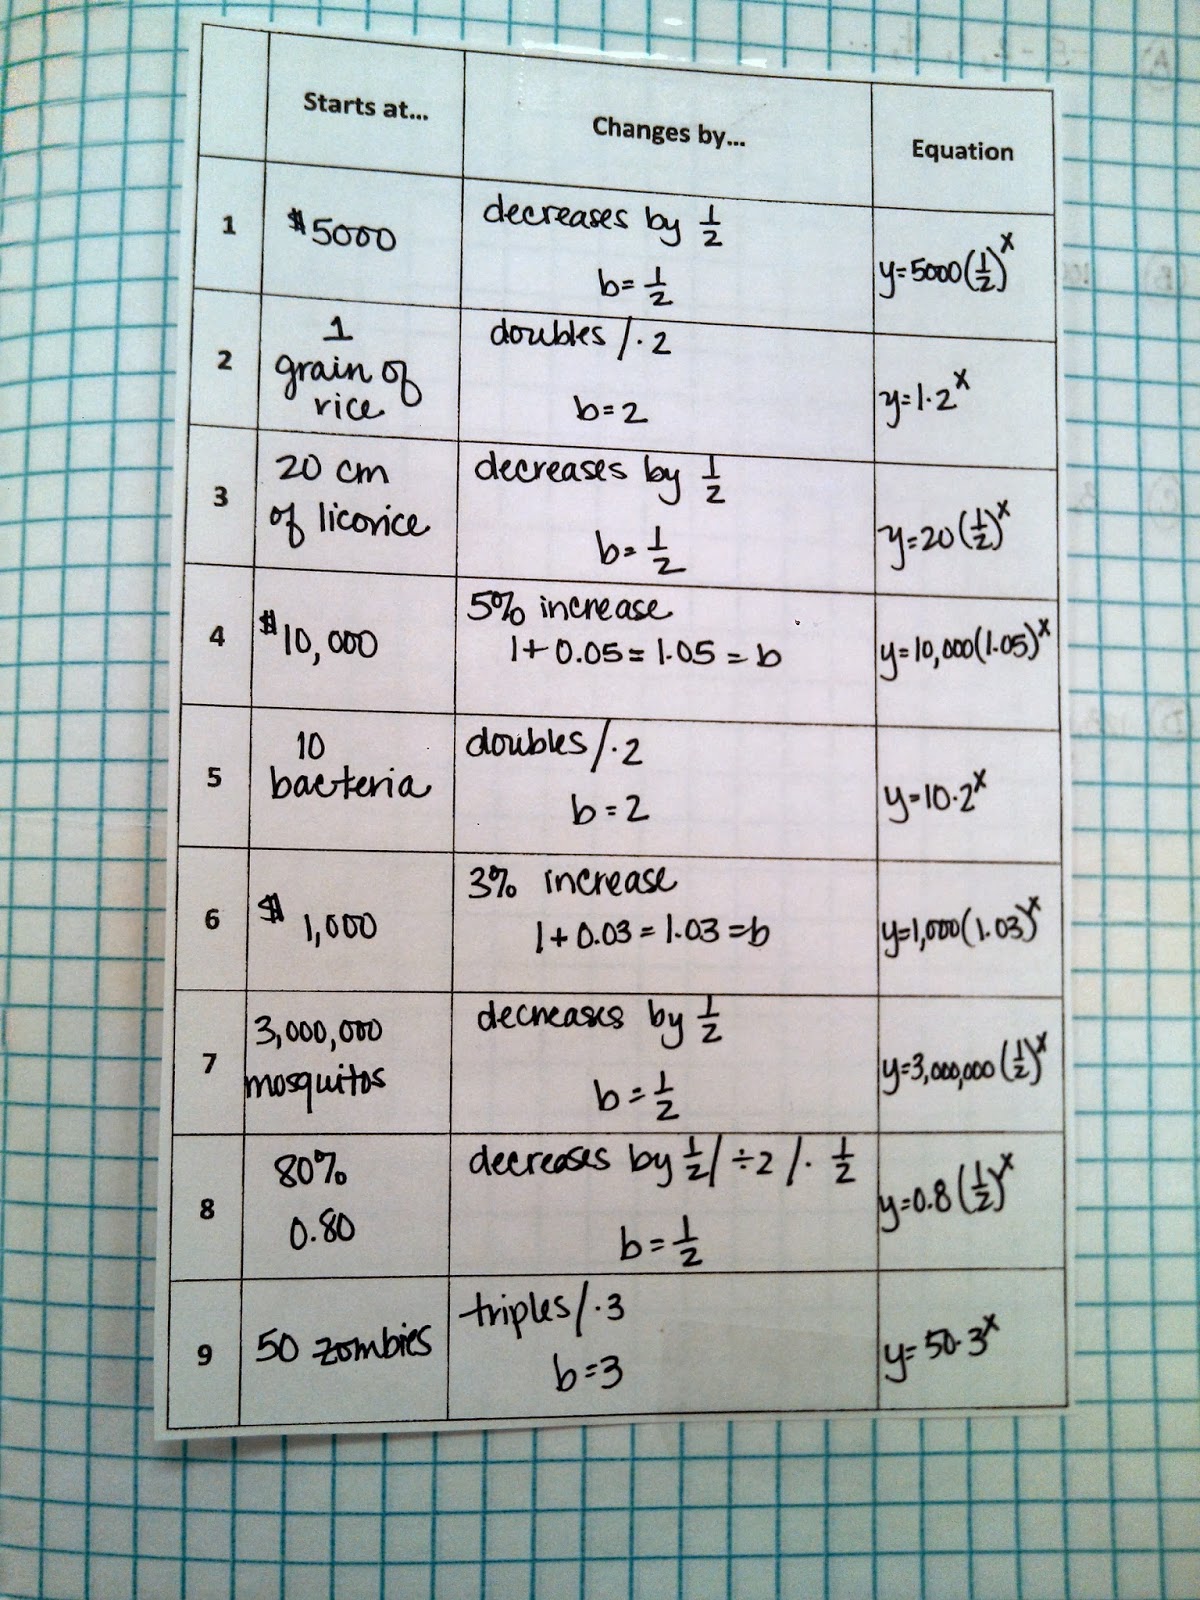 Starts at... Changes by... Equation
1 $5000 decreases by 1/2 y=5000(1/2)^x
b=1/2
2 1 doubles /·2 y=1·2^x
grain of b=2
rice
3 20 cm decreases by 1/2 y=20(1/2)^x
of licorice b=1/2
4 $10,000 5% increase y=10,000(1.05)^x
1+0.05=1.05=b
5 10 doubles/·2 y=10·2^x
bacteria b=2
6 $1,000 3% increase y=1,000(1.03)^x
1+0.03=1.03=b
7 3,000,000 decreases by 1/2 y=3,000,000(1/2)^x
mosquitos b=1/2
8 80% decreases by 1/2/÷2/·1/2 y=0.8(1/2)^x
0.80 b=1/2
9 50 zombies triples/·3 y=50·3^x
b=3